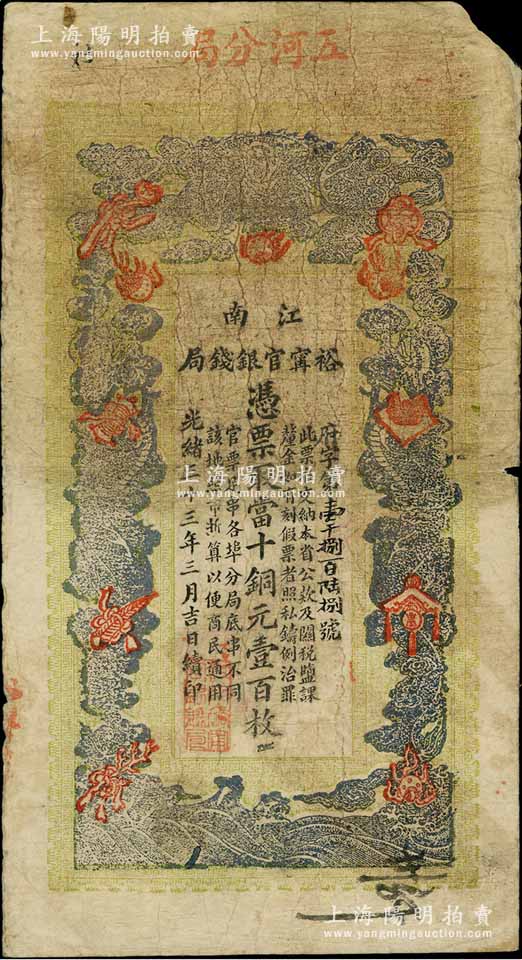 上海陽明拍賣
www.yangmingauction.com
五河分局
上海陽明拍賣
www.yangmingauction.com
江南
裕甯官銀錢局
府字第壹千捌百陸捌號
此票 納本省公款及關稅鹽課
釐金 刻假票者照私鑄例治罪
憑票 當十銅元壹百枚
官票 串各埠分局底串不同
該地 市折算以便商民通用
光緒 三年三月吉日續印
上海陽明拍賣
www.yangmingauction.com
上海陽明拍賣
www.yangmingauction.com